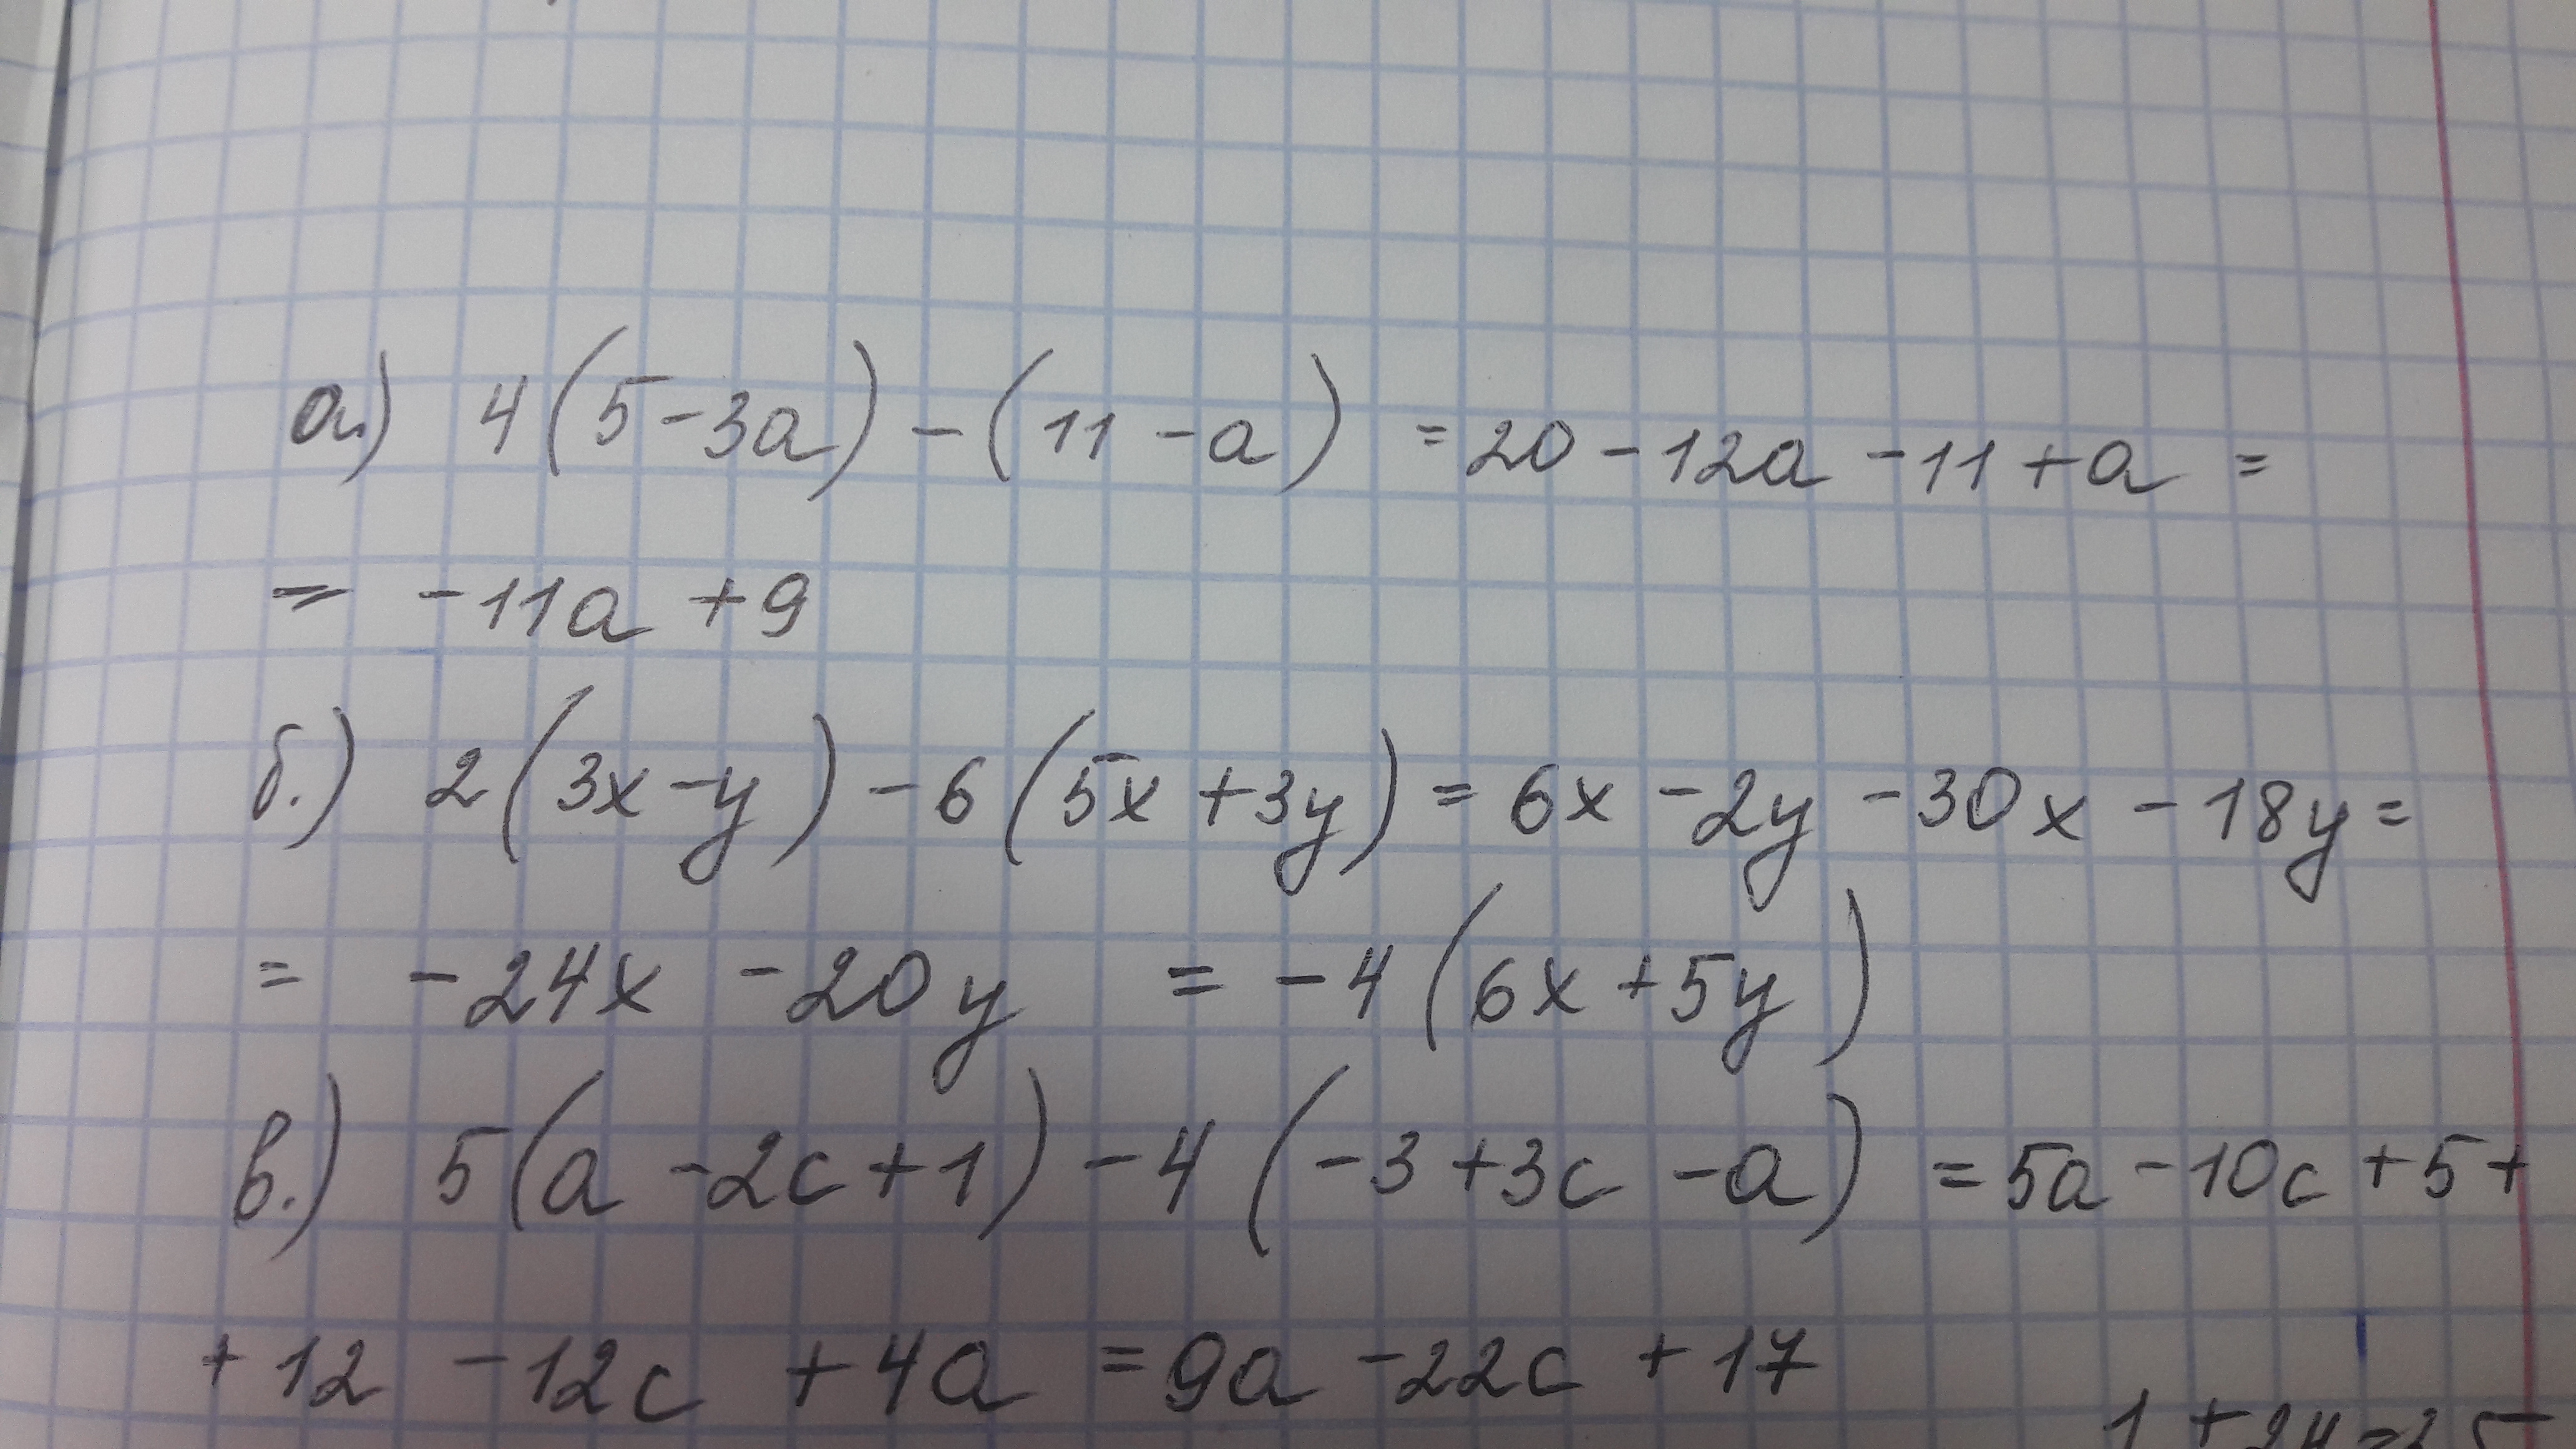 а.) 4(5-3a)-(11-a) = 20-12a-11+a =
= -11a+9
б.) 2(3x-y)-6(5x+3y) = 6x-2y-30x-18y =
= -24x-20y = -4(6x+5y)
в.) 5(a-2c+1)-4(-3+3c-a) = 5a-10c+5+
+12-12c+4a = 9a-22c+17